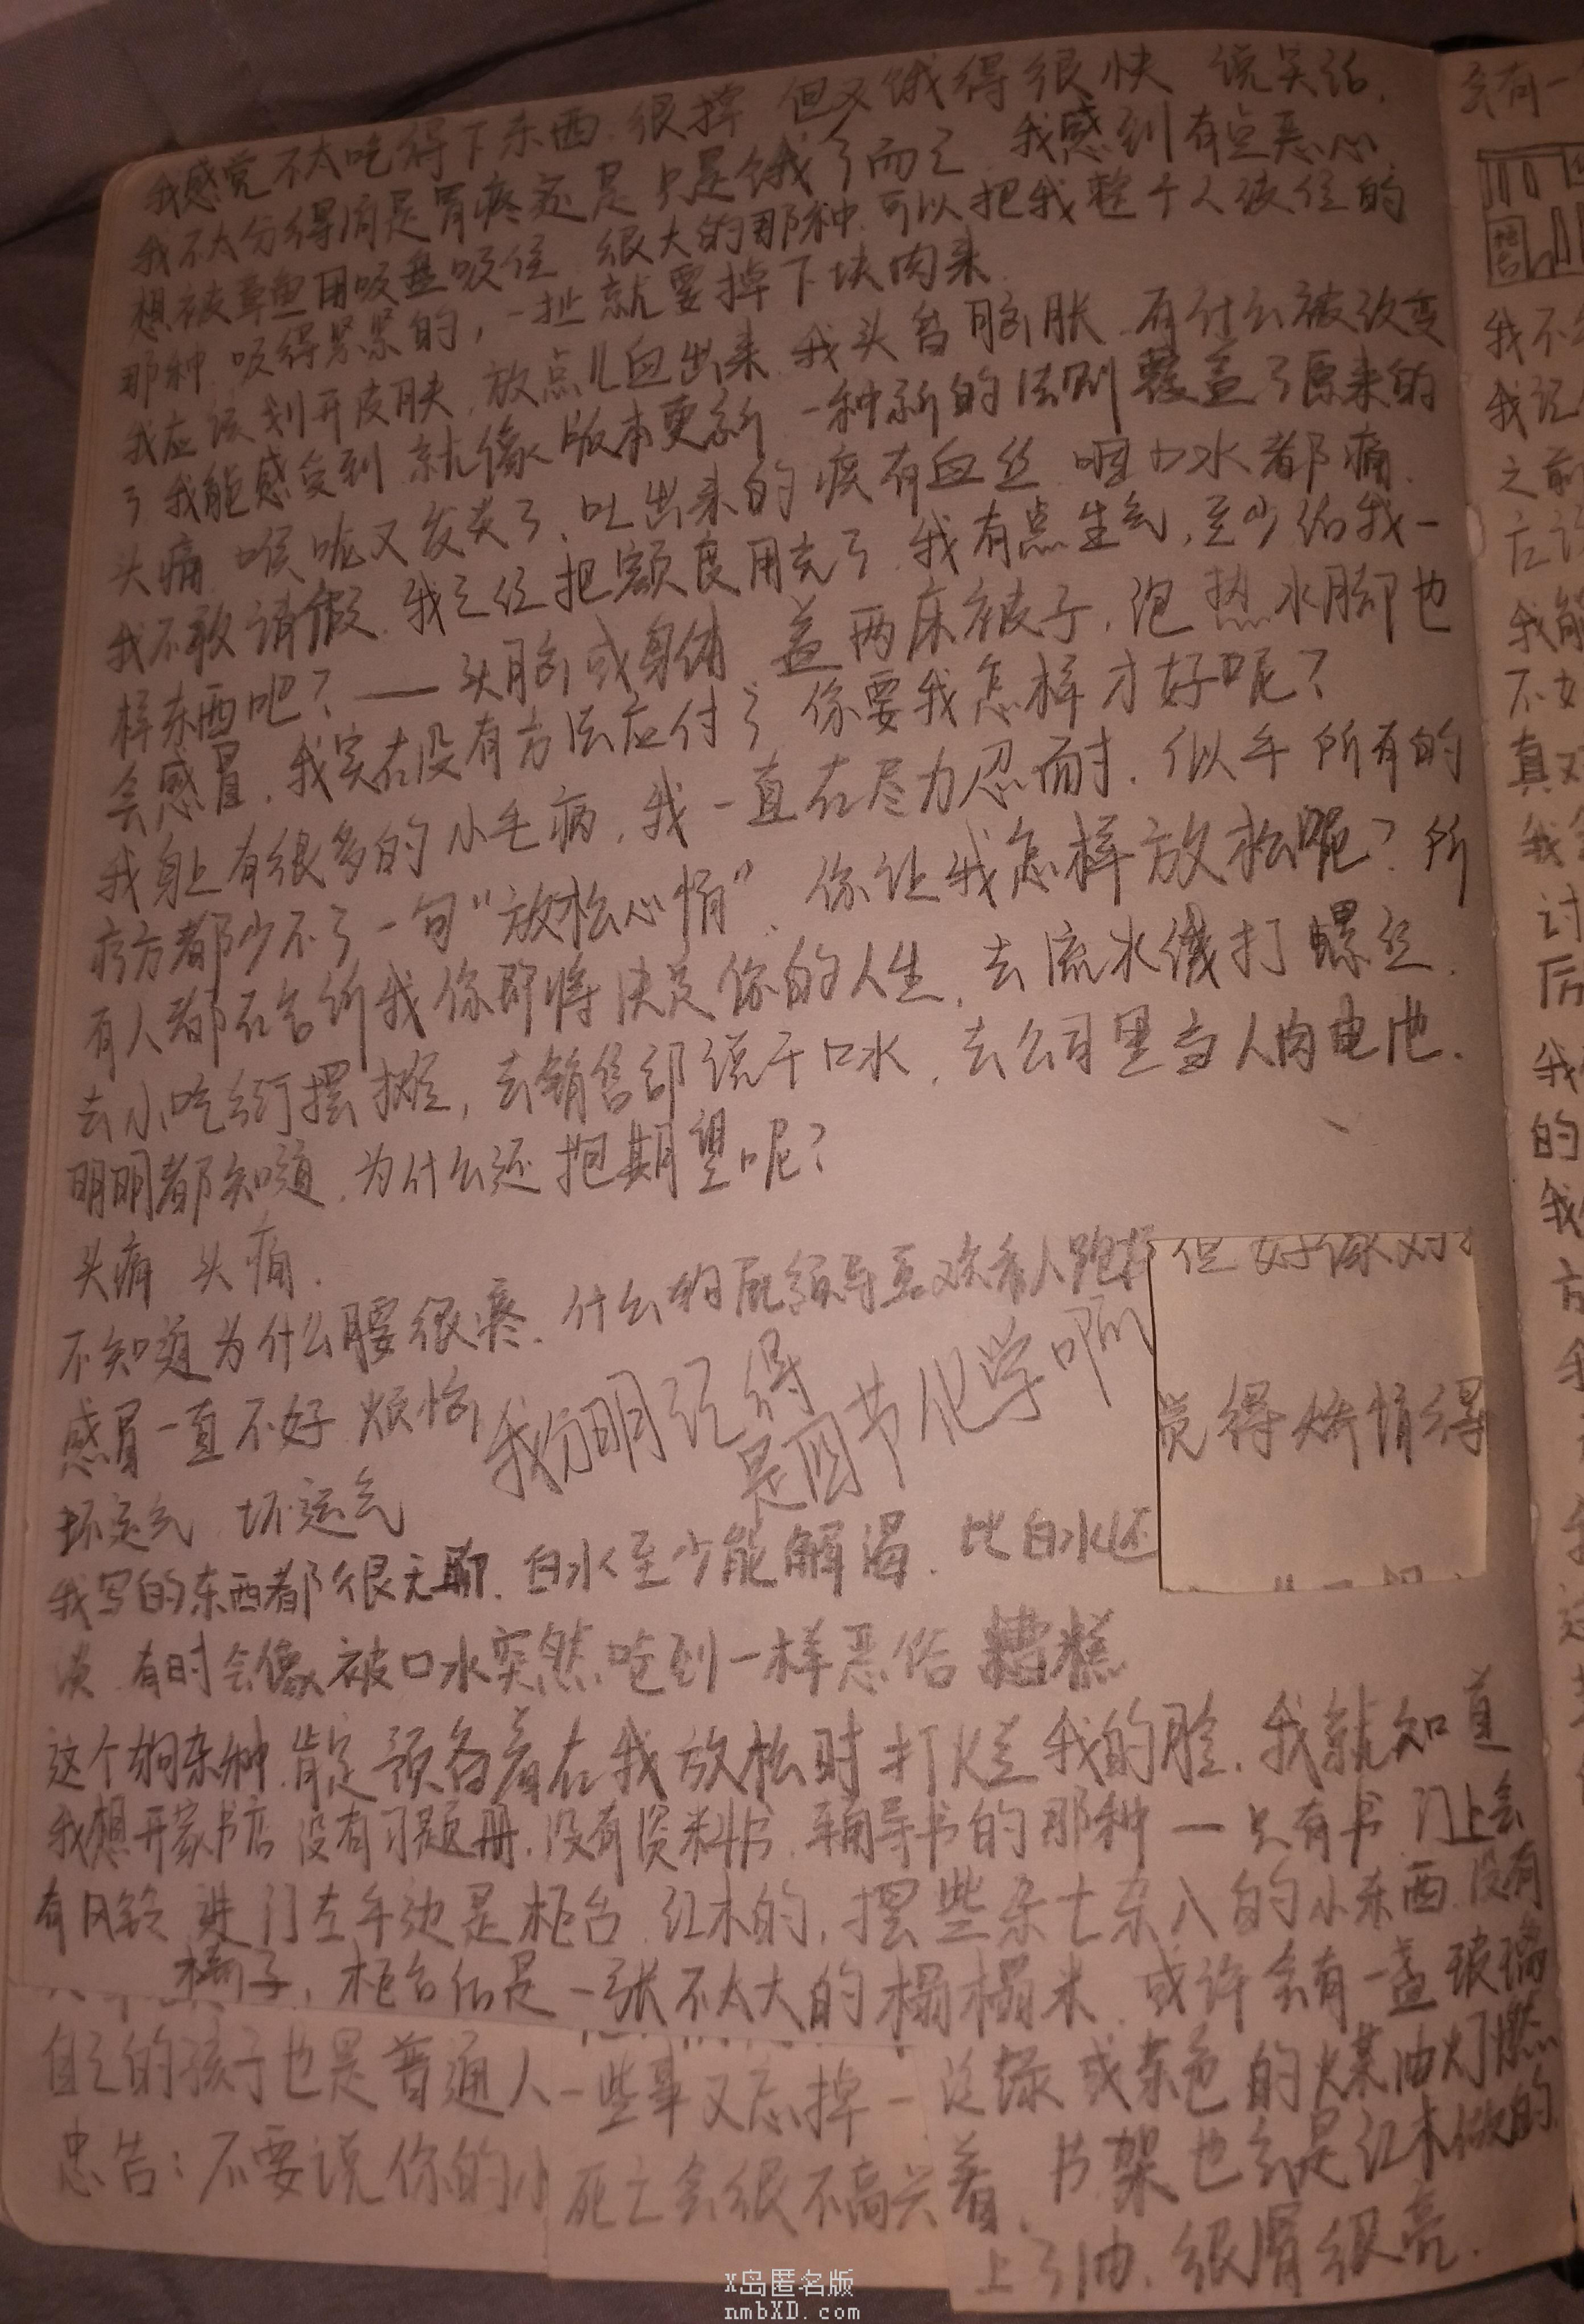 我感觉不太吃得下东西.很撑 但又饿得很快 说实话,
我不太分得清是胃疼还是只是饿了而已.我感到有点恶心.
想被章鱼用吸盘吸住 很大的那种.可以把我整个人裹住的
那种 吸得紧紧的,一扯就要掉下块肉来.
我应该划开皮肤,放点儿血出来 我头昏脑胀.有什么被改变
了 我能感受到 就像版本更新 一种新的法则覆盖了原来的
头痛 喉咙又发炎了.吐出来的痰有血丝 咽口水都痛.
我不敢请假.我已经把额度用完了 我有点生气,至少给我一
样东西吧?——头脑或身体 盖两床被子,泡热水脚也
会感冒.我实在没有方法应付了 你要我怎样才好呢?
我身上有很多的小毛病.我一直在尽力忍耐.似乎所有的
疗方都少不了一句“放松心情”.你让我怎样放松呢?所
有人都在告诉我你即将决定你的人生.去流水线打螺丝.
去小吃街摆摊,去销售部说干口水,去公司里当人肉电池.
明明都知道.为什么还抱期望呢?
头痛 头痛.
不知道为什么腰很疼.什么狗屁领导喜欢看人跑
感冒一直不好 烦恼
我分明记得
是四节化学啊
坏运气 坏运气
我写的东西都很无聊.白水至少能解渴.比白水还
淡 有时会像被口水突然呛到一样恶俗 糟糕
这个狗杂种.肯定预备着在我放松时打烂我的脸.我就知道
我想开家书店 没有习题册.没有资料书 辅导书的那种—只有书 门上会
有风铃 进门左手边是柜台 红木的,摆些杂七杂八的小东西.没有
椅子,柜台后是一张不太大的榻榻米.或许会有一盏玻璃
绿或茶色的煤油灯燃
着.书架也会是红木做的.
上了油.很滑很亮.
但好像对
觉得矫情得
自己的孩子也是普通人
忠告:不要说你的小
一些事又忘掉一
死亡会很不高兴
会有一
柜台
我不
我记
之前
后
我能
不
真
我
讨
后
我
的
我
方
X岛匿名版
nmbXD.com